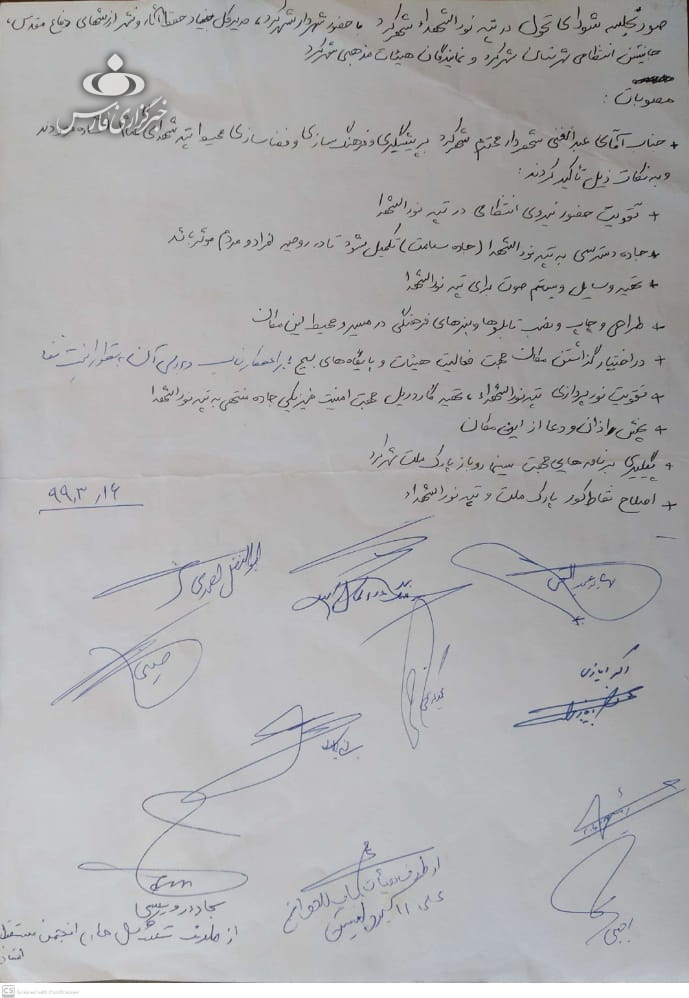 صورتجلسه شورای تحول در تپه نورالشهداء شهرکرد با حضور شهردار شهرکرد، مدیرکل بنیاد حفظ آثار و نشر ارزشهای دفاع مقدس،
جانشین انتظامی شهرستان شهرکرد و نمایندگان هیئات مذهبی شهرکرد
خبرگزاری فارس
مصوبات:
+ جناب آقای عبدالغنی شهردار محترم شهرکرد بر پیشگیری و فرهنگ سازی و فضاسازی محیط تپه شهدای
و به نکات ذیل تأکید کردند:
+ تقویت حضور نیروی انتظامی در تپه نورالشهدا
+ جاده دسترسی به تپه نورالشهدا (جاده سلامت) تکمیل شود تا در روحیه افراد و مردم موثر باشد
+ تهیه وسایل و سیستم صوت برای تپه نورالشهدا
+ طراحی و چاپ و نصب تابلوها و بنرهای فرهنگی در مسیر و محیط این مکان
+ در اختیار گذاشتن مکان جهت فعالیت هیئات و پایگاه های بسیج
+ تقویت نورپردازی تپه نورالشهداء، تهیه گاردریل جهت امنیت فیزیکی جاده منتهی به تپه نورالشهدا
+ پخش اذان و دعا از این مکان
+ پیگیری برنامه هایی جهت سینما روباز پارک ملت شهرکرد
+ اصلاح نقاط کور پارک ملت و تپه نورالشهداء
۹۹٫۳٫۱۶
ابوالفضل احمدی
حسینی
اکبر ایازی
سجاد درویشی
از طرف هیأت باب الحوائج
علی اکبر
از طرف تشکل های انجمن مستقل
CS Scanned with CamScanner